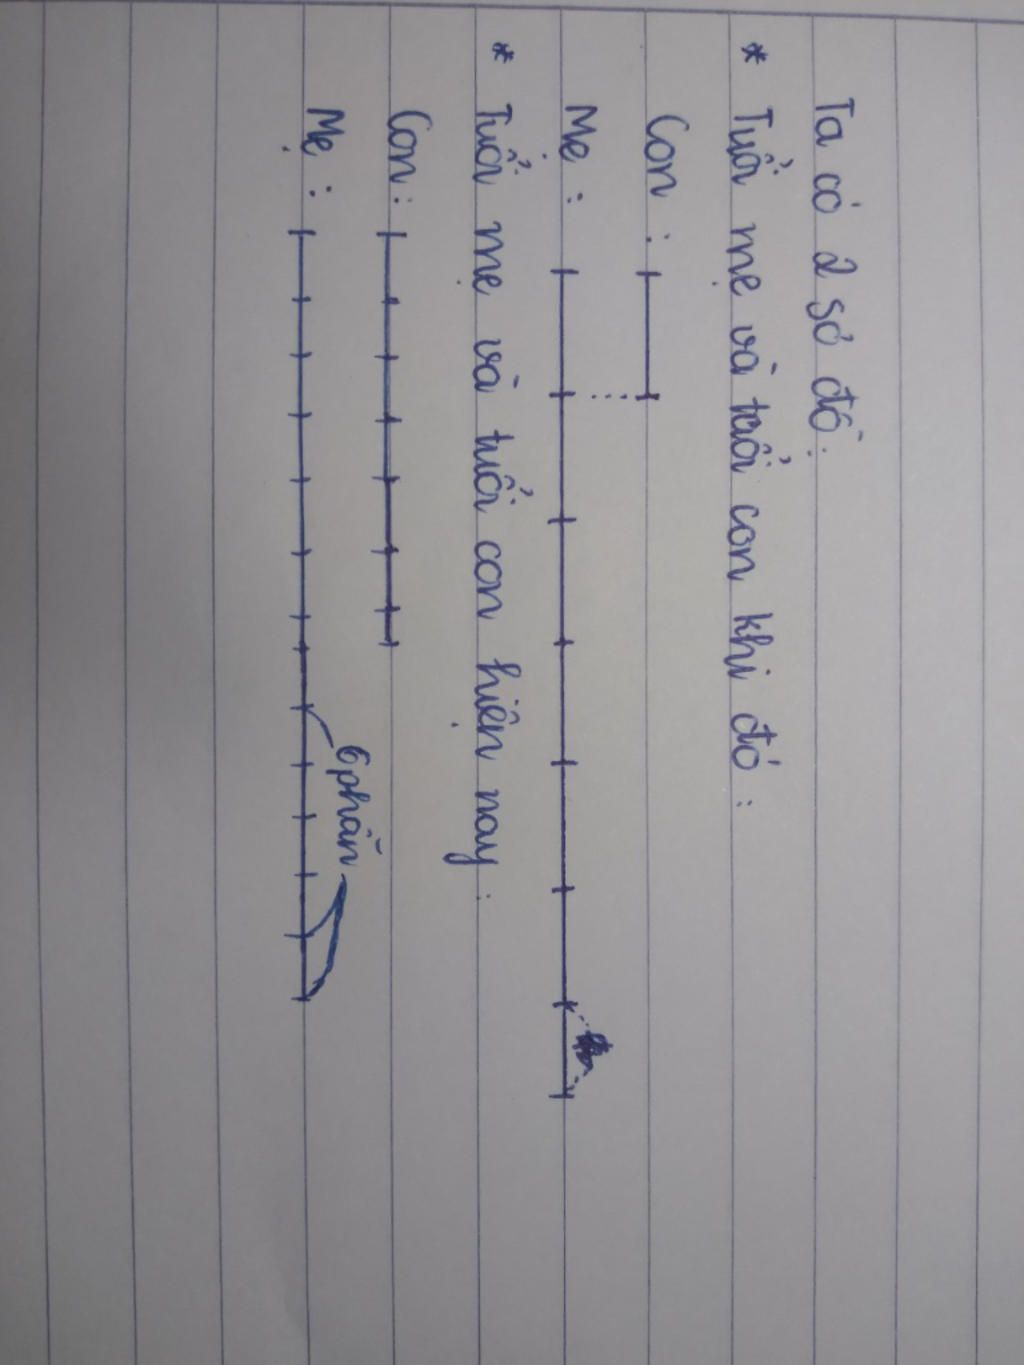 Ta có 2 sơ đồ.
* Tuổi mẹ và tuổi con khi đó :
Con :
Mẹ :
* Tuổi mẹ và tuổi con hiện nay :
Con :
6 phần
Mẹ :